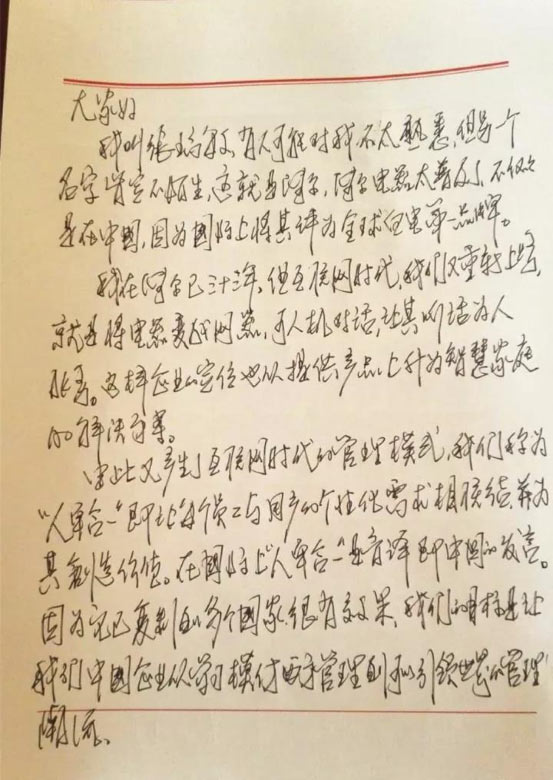 大家好
我叫张瑞敏,有人可能对我不太熟悉,但另一个
名字肯定不陌生,这就是海尔,海尔电器太普及了,不仅仅
是在中国,因为国际上将其评为全球白电第一品牌。
我在海尔已卅年,但互联网时代,我们又重新上路,
就是将电器变成网器,可人机对话,让其听话为人
服务。这样企业的定位也从提供产品上升为智慧家庭
的解决方案。
由此又产生了互联网时代的管理模式,我们称为
“人单合一”即让每个员工与用户的个性化需求相联结,并为
其创造价值。在国际上“人单合一”是音译即中国的发音。
因为它已复制到多个国家,很有效果,我们的目标是让
我们中国企业从学习模仿西方管理到可以引领世界的管理
潮流。